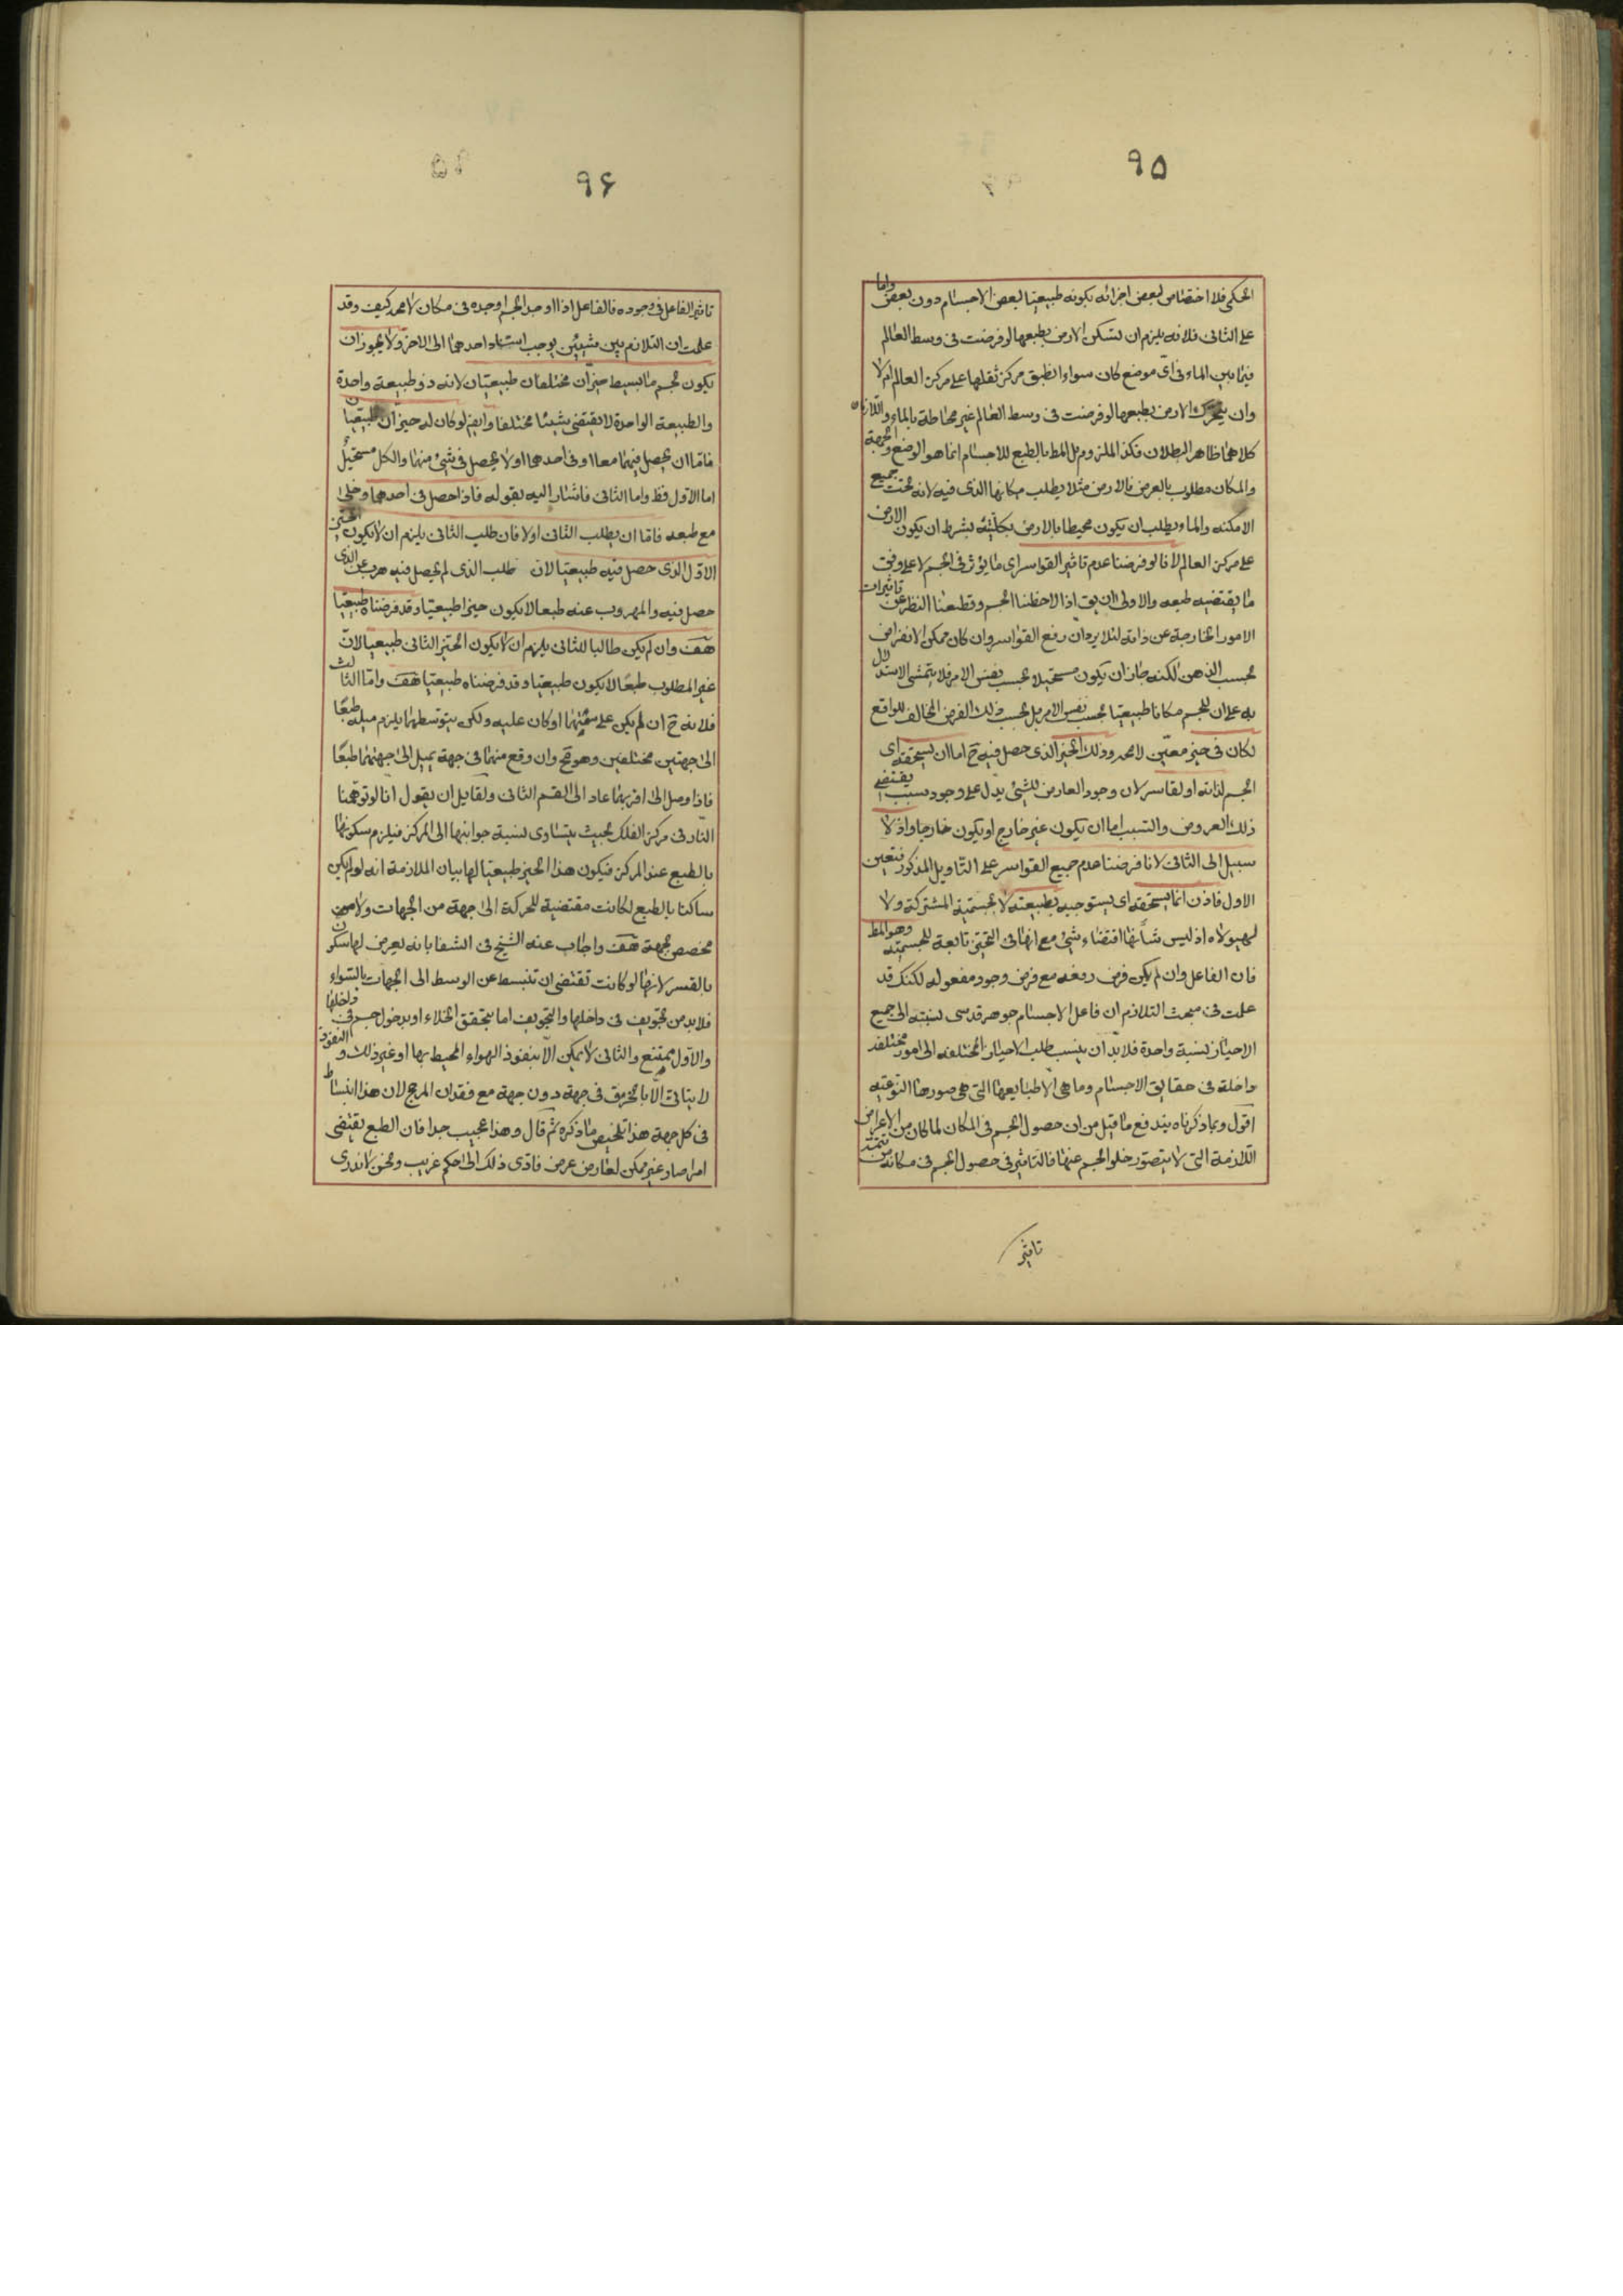 ۹۵
الحكمی فلا اختصاص لبعض اجزائه بكونه طبيعيا لبعض الاجسام دون بعض واما
على الثانى فلانه يلزم ان تسكن الارض بطبعها لو فرضت فى وسط العالم
فيما بين الماء فى اى موضع كان سواء انطبق مركز ثقلها على مركز العالم ام لا
وان يتحرك الارض بطبعها لو فرضت فى وسط العالم غير محاطة بالماء واللازمان
كلاهما ظاهر البطلان فكذا الملزوم بل المط بالطبع للاجسام انما هو الوضع والجهة
والمكان مطلوب بالعرض فالارض مثلا يطلب مكانها الذى فيه لانه تحت جميع
الامكنه والماء يطلب ان يكون محيطا بالارض بكليته بشرط ان يكون الارض
على مركز العالم لانا لو فرضنا عدم تاثير القواسر اى ما يؤثر فى الجسم لا على وفق
ما يقتضيه طبعه والاولى ان يق اذا لاحظنا الجسم وقطعنا النظر عن تاثيرات
الامور الخارجة عن ذاته لئلا يرد ان رفع القواسر وان كان ممكن الانفراض
بحسب الذهن لكنه جاز ان يكون مستحيلا بحسب نفس الامر فلا يتمشى الاستدلال
به على ان للجسم مكانا طبيعيا بحسب نفس الامر بل بحسب ذلك الفرض المخالف للواقع
لكان فى حيز معين لامحه وذلك الحيز الذى حصل فيه ح اما ان يستحقه اى
الجسم لذاته او لقاسر لان وجود العارض للشئ يدل على وجود سبب يقتضى
ذلك العروض والسبب اما ان يكون غير خارج او يكون خارجا واذ لا
سبيل الى الثانى لانا فرضنا عدم جميع القواسر على التاويل المذكور فتعين
الاول فاذن انما يستحقه اى يستوجبه بطبيعته لا بجسميته المشتركة ولا
لهيولاه اذ ليس شأنها اقتضاء شئ مع انها فى التحيز تابعة للجسمية وهو المط
فان الفاعل وان لم يكن فرض رفعه مع فرض وجود مفعوله لكنك قد
علمت فى مبحث التلازم ان فاعل الاجسام جوهر قدسى نسبته الى جميع
الاحياز نسبة واحدة فلا بد ان ينسب طلب الاحياز المختلفه الى امور مختلفه
داخلة فى حقايق الاجسام وما هى الا طبايعها التى هى صورها النوعيه
اقول وبما ذكرناه يندفع ما قيل من ان حصول الجسم فى المكان لما كان من الاعراض
اللازمة التى لا يتصور خلو الجسم عنها فالتاثير فى حصول الجسم فى مكانه من تتمة
تاثير
۹۶
تاثير الفاعل فى وجوده فالفاعل اذا اوجد الجسم اوجده فى مكان لامحه كيف وقد
علمت ان التلازم بين شيئين يوجب استناد احدهما الى الاخر ولا يجوز ان
يكون لجسم ما بسيط حيزان مختلفان طبيعيان لانه ذو طبيعة واحدة
والطبيعة الواحدة لا يقتضى شيئا مختلفا وايض لو كان له حيزان طبيعيان
فاما ان يحصل فيهما معا او فى احدهما او لا يحصل فى شئ منهما والكل مستحيل
اما الاول فظ واما الثانى فاشار اليه بقوله فاذا حصل فى احدهما وخلى
مع طبعه فاما ان يطلب الثانى او لا فان طلب الثانى يلزم ان لا يكون الحيز
الاول الذى حصل فيه طبيعيا لان طلب الذى لم يحصل فيه هرب عن الذى
حصل فيه والمهروب عنه طبعا لا يكون حيزا طبيعيا وقد فرضناه طبيعيا
هف وان لم يكن طالبا للثانى يلزم ان لا يكون الحيز الثانى طبيعيا لان
غير المطلوب طبعا لا يكون طبيعيا وقد فرضناه طبيعيا هف واما الثالث
فلانه ح ان لم يكن على سمتهما او كان عليه ولكن يتوسطهما يلزم ميله طبعا
الى جهتين مختلفتين وهو مح وان وقع منهما فى جهة يميل الى جهتهما طبعا
فاذا وصل الى اقربهما عاد الى القسم الثانى ولقايل ان يقول انا لو توهمنا
النار فى مركز الفلك بحيث يتساوى نسبة جوانبها الى المركز فيلزم سكونها
بالطبع عند المركز فيكون هذا الحيز طبيعيا لها بيان الملازمة انه لو لم يكن
ساكنا بالطبع لكانت مقتضية للحركة الى جهة من الجهات ولا
مخصص بجهة هف واجاب عنه الشيخ فى الشفا بانه يعرض لها سكون
بالقسر لانها لو كانت تقتضى ان تنبسط عن الوسط الى الجهات بالسواء
فلا بد من تجويف فى داخلها والتجويف اما بتحقق الخلاء او بدخول جسم فى داخلها
والاول ممتنع والثانى لا يمكن الا بنفوذ الهواء المحيط بها او غير ذلك و النفوذ
لا يتاتى الا بالخرق فى جهة دون جهة مع فقدان المرجح لان هذا انبساط
فى كل جهة هذا تلخيص ما ذكره ثم قال وهذا عجيب جدا فان الطبع تقتضى
امرا صار غير ممكن لعارض عرض فادى ذلك الى حكم غريب ونحن لا ندرى